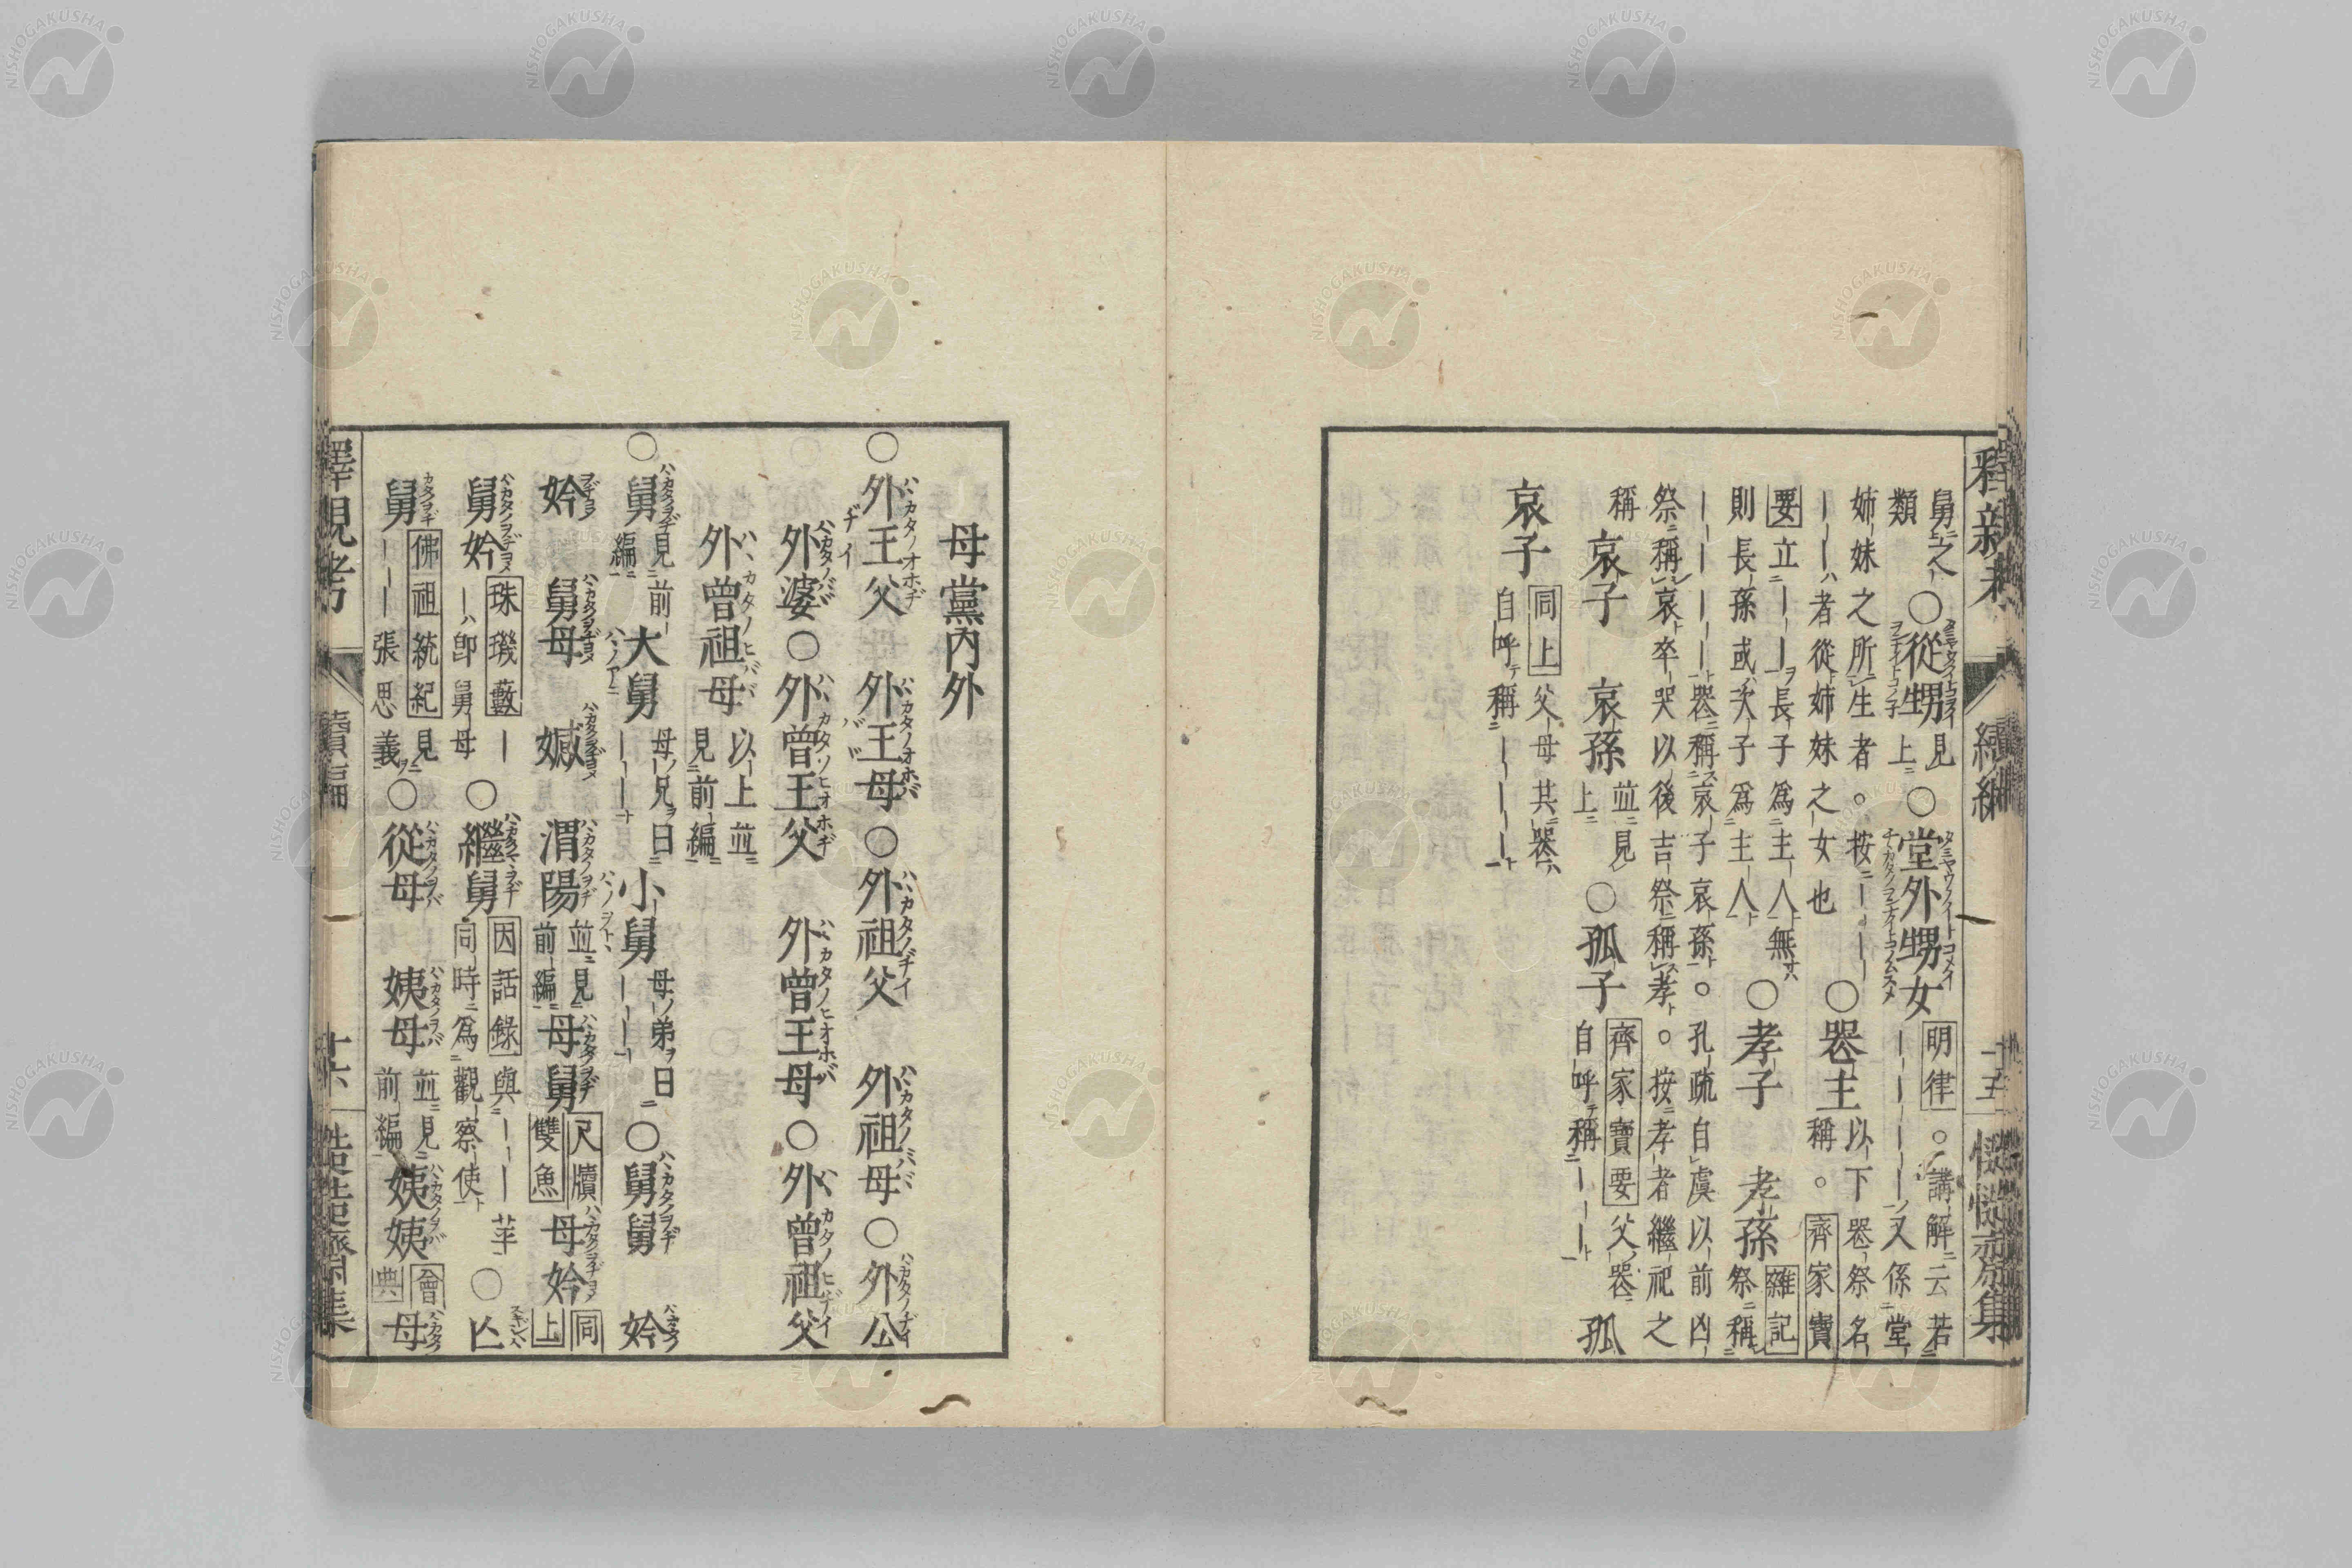 舅之○從甥見上○堂外甥女明律。講解云若
類
姉妹之所生者。按ーーーーー又係堂
ーーハ者從姉妹之女也○喪主以下喪祭名稱。齊家寶
要立ーーヲ長子爲主人無ハ○孝子 孝孫雜記祭稱
則長孫或次子爲主人
ーーーー喪稱哀子哀孫。孔疏自虞以前凶
祭稱哀卒哭以後吉祭稱孝。按孝者繼祀之
稱
哀子 哀孫並見上○孤子齊家寶要父喪自呼稱ーーー 孤
哀子同上父母其喪自呼稱ーーーー
釋親考 續編 十五
母黨內外
○外王父 外王母○外祖父 外祖母○外公
外婆○外曾王父 外曾王母○外曾祖父
外曾祖母以上並見前編
○舅見前編 大舅母ノ兄ヲ曰ーー 小舅母ノ弟ヲ曰ーー○舅舅 妗
妗 舅母 㜝 渭陽並見前編母舅尺牘雙魚母妗同上
舅妗珠璣藪ーーハ卽舅母○繼舅因話錄與ーー苹同時爲觀察使○亡
舅佛祖統紀見ーーー張思義○從母 姨母並見前編姨姨會典母
釋親考 續編 十六